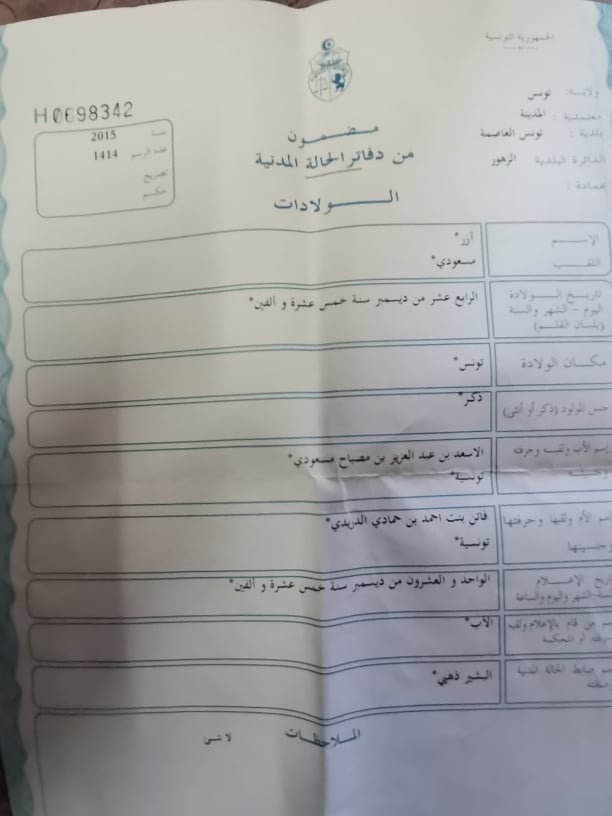 الجمهورية التونسية
ولاية: تونس
معتمدية: المدينة
بلدية: تونس العاصمة
الدائرة البلدية الزهور
عمادة:
H0698342
سنة 2015
عدد الرسم 1414
تصريح
حكم
مضمون
من دفاتر الحالة المدنية
الولادات
الإسم آزر*
اللقب مسعودي*
تاريخ الولادة الرابع عشر من ديسمبر سنة خمس عشرة و ألفين*
اليوم - الشهر والسنة
(بلسان القلم)
مكان الولادة تونس*
جنس المولود (ذكر أو أنثى) ذكر*
إسم الأب ولقبه وحرفته الاسعد بن عبد العزيز بن مصباح مسعودي*
وجنسيته تونسية*
إسم الأم ولقبها وحرفتها فاتن بنت احمد بن حمادي الدريدي*
وجنسيتها تونسية*
تاريخ الإعلام الواحد و العشرون من ديسمبر سنة خمس عشرة و ألفين*
السنة-الشهر واليوم والساعة
إسم من قام بالإعلام ولقبه الأب*
وحرفته أو المحكمة
إسم ضابط الحالة المدنية البشير ذهبي*
وصفته
الملاحظات
لا شئ